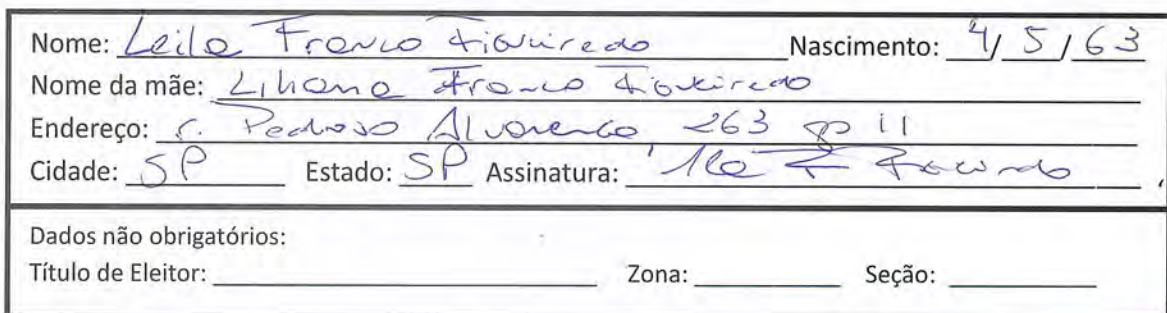 Nome: Leila Franco Figueiredo Nascimento: 4/5/63
Nome da mãe: Liliana Franco Figueiredo
Endereço: r. Pedroso Alvarenga 263 ap 11
Cidade: SP Estado: SP Assinatura:
Dados não obrigatórios:
Título de Eleitor: Zona: Seção: